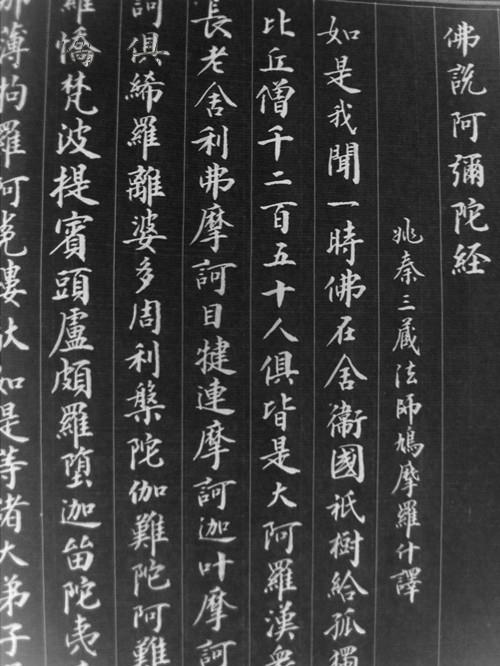 佛説阿彌陀经
姚秦三藏法師鳩摩羅什譯
如是我聞一時佛在舍衛國祇樹給孤獨
比丘僧千二百五十人俱皆是大阿羅漢衆
長老舍利弗摩訶目犍連摩訶迦叶摩訶
訶俱絺羅離婆多周利槃陀伽難陀阿難
羅憍梵波提賓頭盧頗羅堕迦留陀夷
那薄拘羅阿㝹樓馱如是等诸大弟子